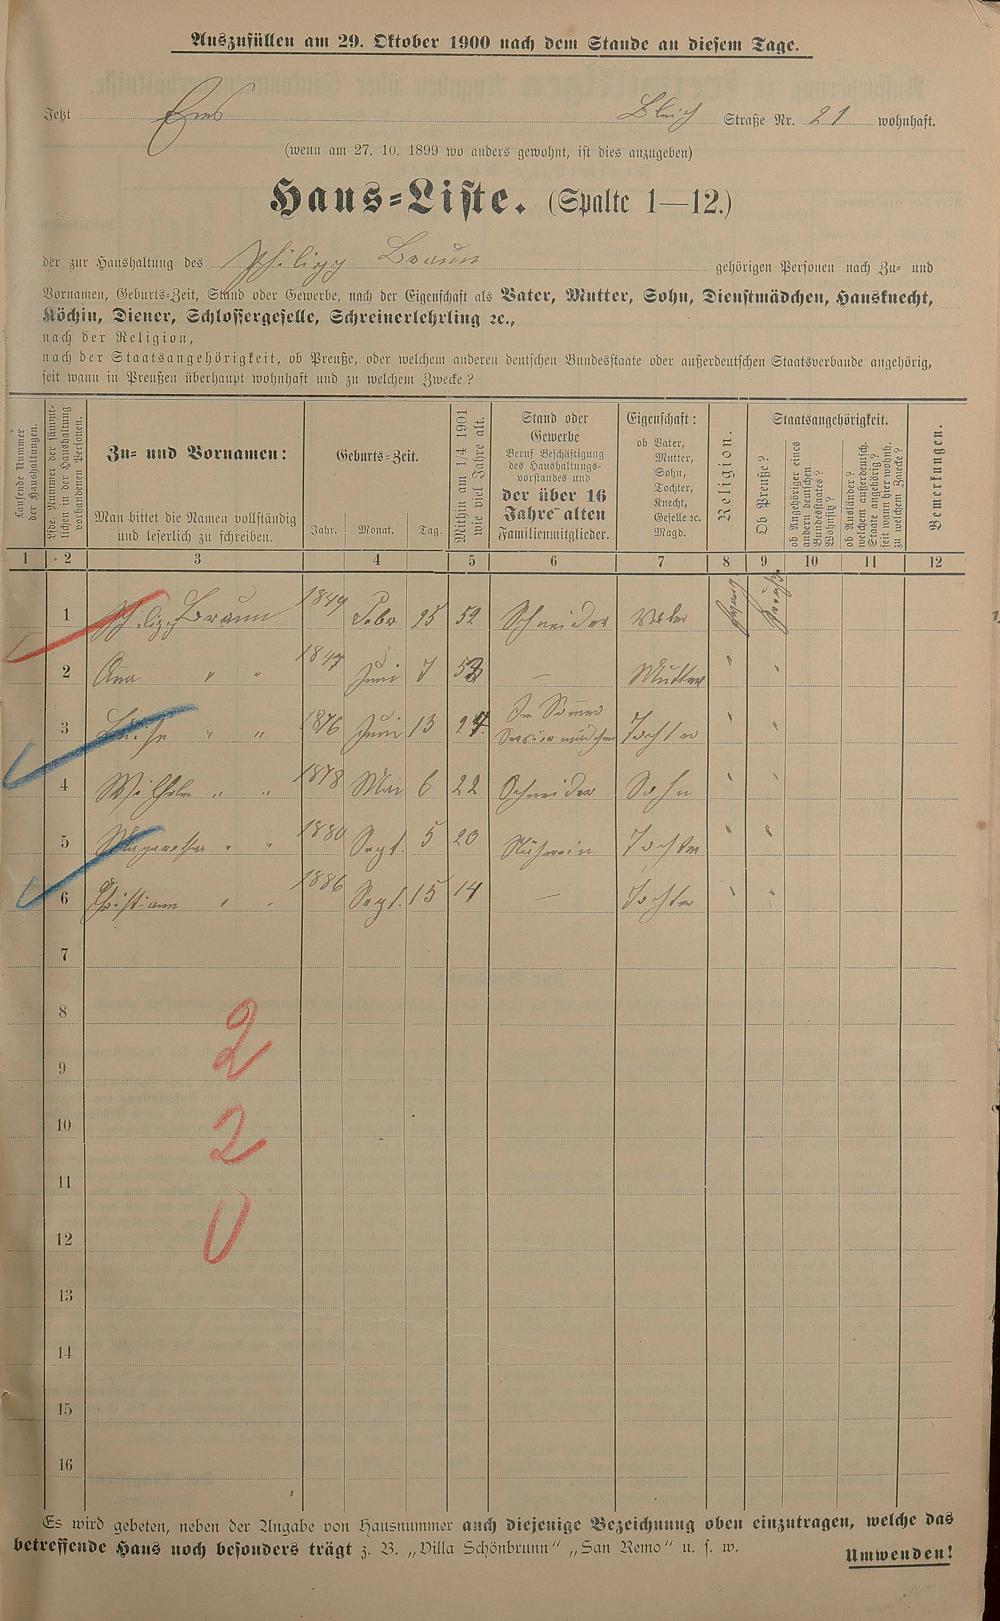 Auszufüllen am 29. Oktober 1900 nach dem Stande an diesem Tage.
Jetzt Ems Bleich Straße Nr. 21 wohnhaft.
(wenn am 27. 10. 1899 wo anders gewohnt, ist dies anzugeben)
Haus=Liste. (Spalte 1—12.)
der zur Haushaltung des Philipp Braun gehörigen Personen nach Zu- und
Vornamen, Geburts-Zeit, Stand oder Gewerbe, nach der Eigenschaft als Vater, Mutter, Sohn, Dienstmädchen, Hausknecht,
Köchin, Diener, Schlossergeselle, Schreinerlehrling ꝛc.,
nach der Religion,
nach der Staatsangehörigkeit, ob Preuße, oder welchem anderen deutschen Bundesstaate oder außerdeutschen Staatsverbande angehörig,
seit wann in Preußen überhaupt wohnhaft und zu welchem Zwecke?
Laufende Nummer
der Haushaltungen.
Lfde. Nummer der sämmt-
lichen in der Haushaltung
vorhandenen Personen.
Zu- und Vornamen:
Man bittet die Namen vollständig
und leserlich zu schreiben.
Geburts-Zeit.
Jahr. Monat. Tag.
Mithin am 1/4 1901
wie viel Jahre alt.
Stand oder
Gewerbe
Beruf Beschäftigung
des Haushaltungs-
vorstandes und
der über 16
Jahre alten
Familienmitglieder.
Eigenschaft:
ob Vater,
Mutter,
Sohn,
Tochter,
Knecht,
Geselle ꝛc.
Magd.
Religion.
Staatsangehörigkeit.
Ob Preuße?
ob Angehöriger eines
andern deutschen
Bundesstaates?
Wohnsitz?
ob Ausländer?
welchem außerdeutsch.
Staate angehörig?
seit wann hier wohnh.
zu welchem Zwecke?
Bemerkungen.
1 2 3 4 5 6 7 8 9 10 11 12
1 Philipp Braun 1849 Febr 25 52 Schneider Vater evang Preuße
2 Ana " " 1847 Juni 7 53 — Mutter " "
3 Luise " " 1876 Juni 13 24 Im Sommer Serviermädchen Tochter " "
4 Wilhelm " " 1878 Mai 6 22 Schneider Sohn " "
5 Margaretha " " 1880 Sept. 5 20 Näherin Tochter " "
6 Christiane " " 1886 Sept. 15 14 — Tochter " "
7
8
2
9
10
2
11
12
0
13
14
15
16
Es wird gebeten, neben der Angabe von Hausnummer auch diejenige Bezeichnung oben einzutragen, welche das
betreffende Haus noch besonders trägt z. B. „Villa Schönbrunn" „San Remo" u. s. w.
Umwenden!